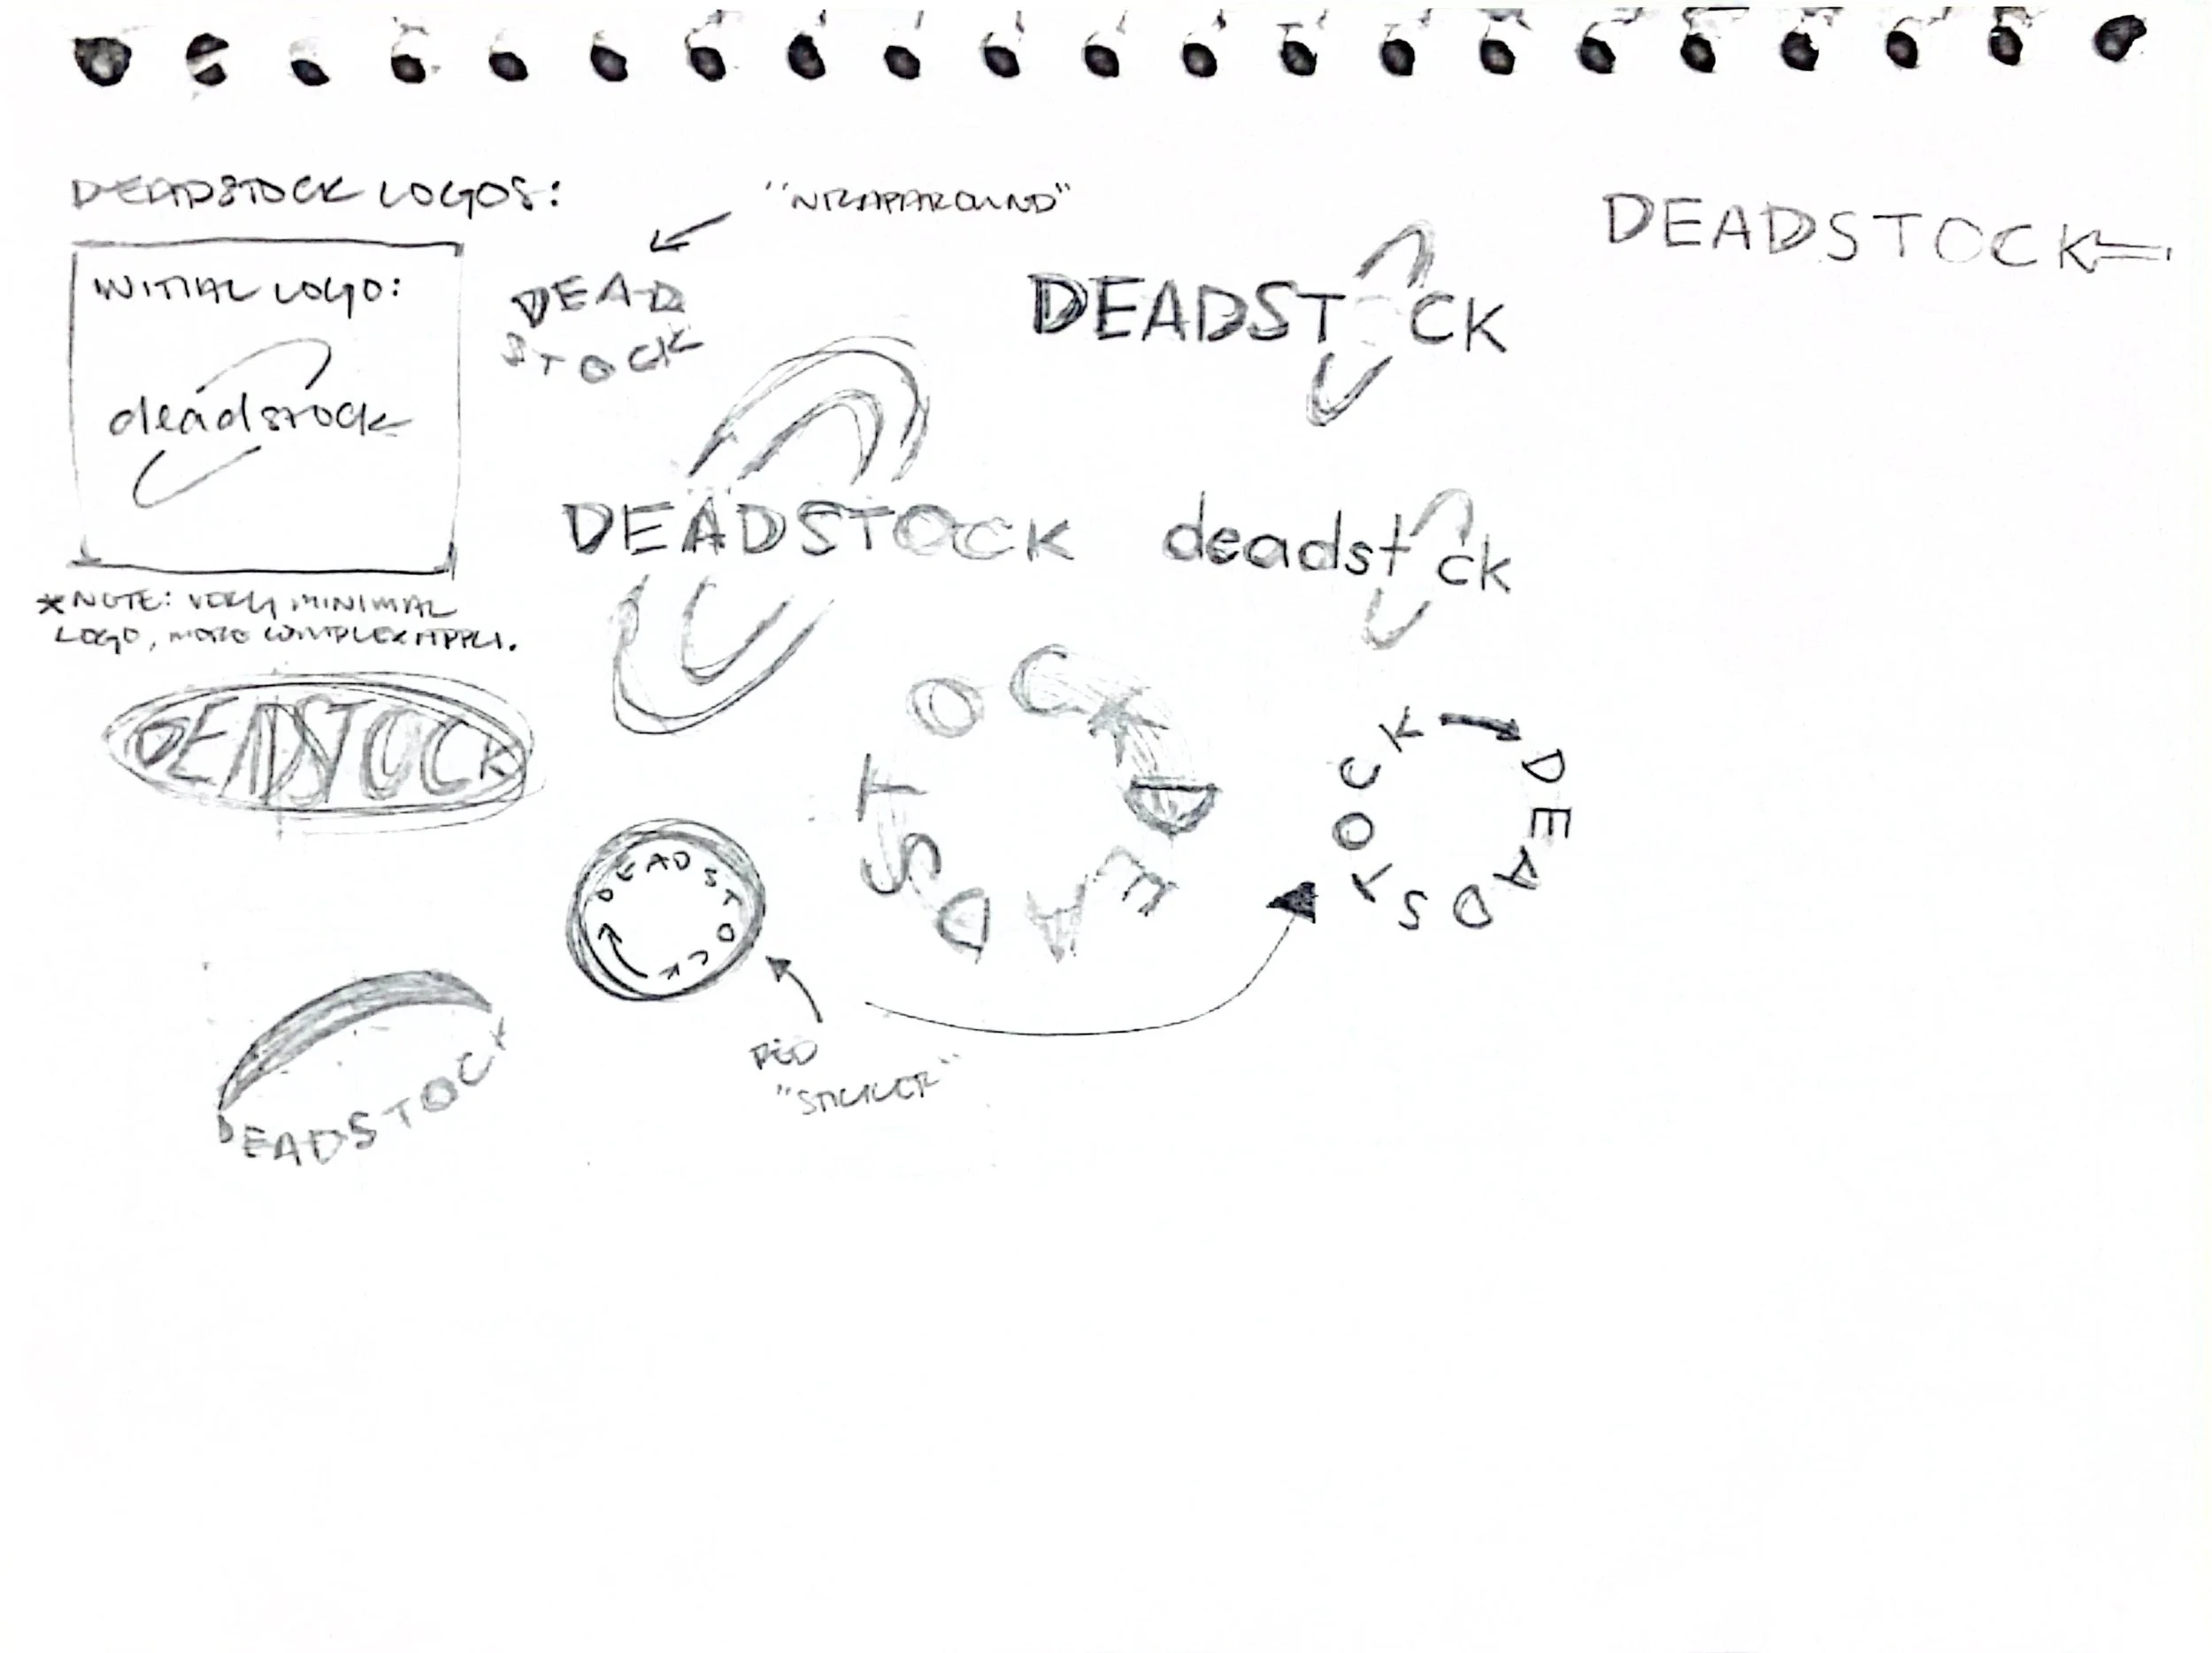 DEADSTOCK LOGOS:
"WRAPAROUND"
DEADSTOCK
INITIAL LOGO:
deadstock
DEAD
STOCK
DEADST CK
DEADSTOCK
deadst ck
*NOTE: VERY MINIMAL
LOGO, MORE COMPLEX APPLI.
DEADSTOCK
DEADSTOCK
DEADSTOCK
DEADSTOCK
DEADSTOCK
RED
"STICKER"